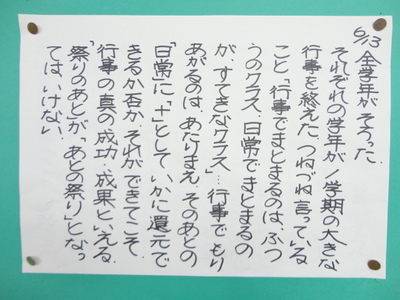 6/13 全学年がそろった。
それぞれの学年が1学期の大きな
行事を終えた。つねづね言っている
こと「行事でまとまるのは、ふつ
うのクラス、日常でまとまるの
が、すてきなクラス」…行事でもり
あがるのは、あたりまえ、そのあとの
「日常」に「+」として、いかに還元で
きるか否か、それができてこそ、
行事の真の成功・成果といえる。
「祭りのあとが、あとの祭り」となっ
ては、いけない。